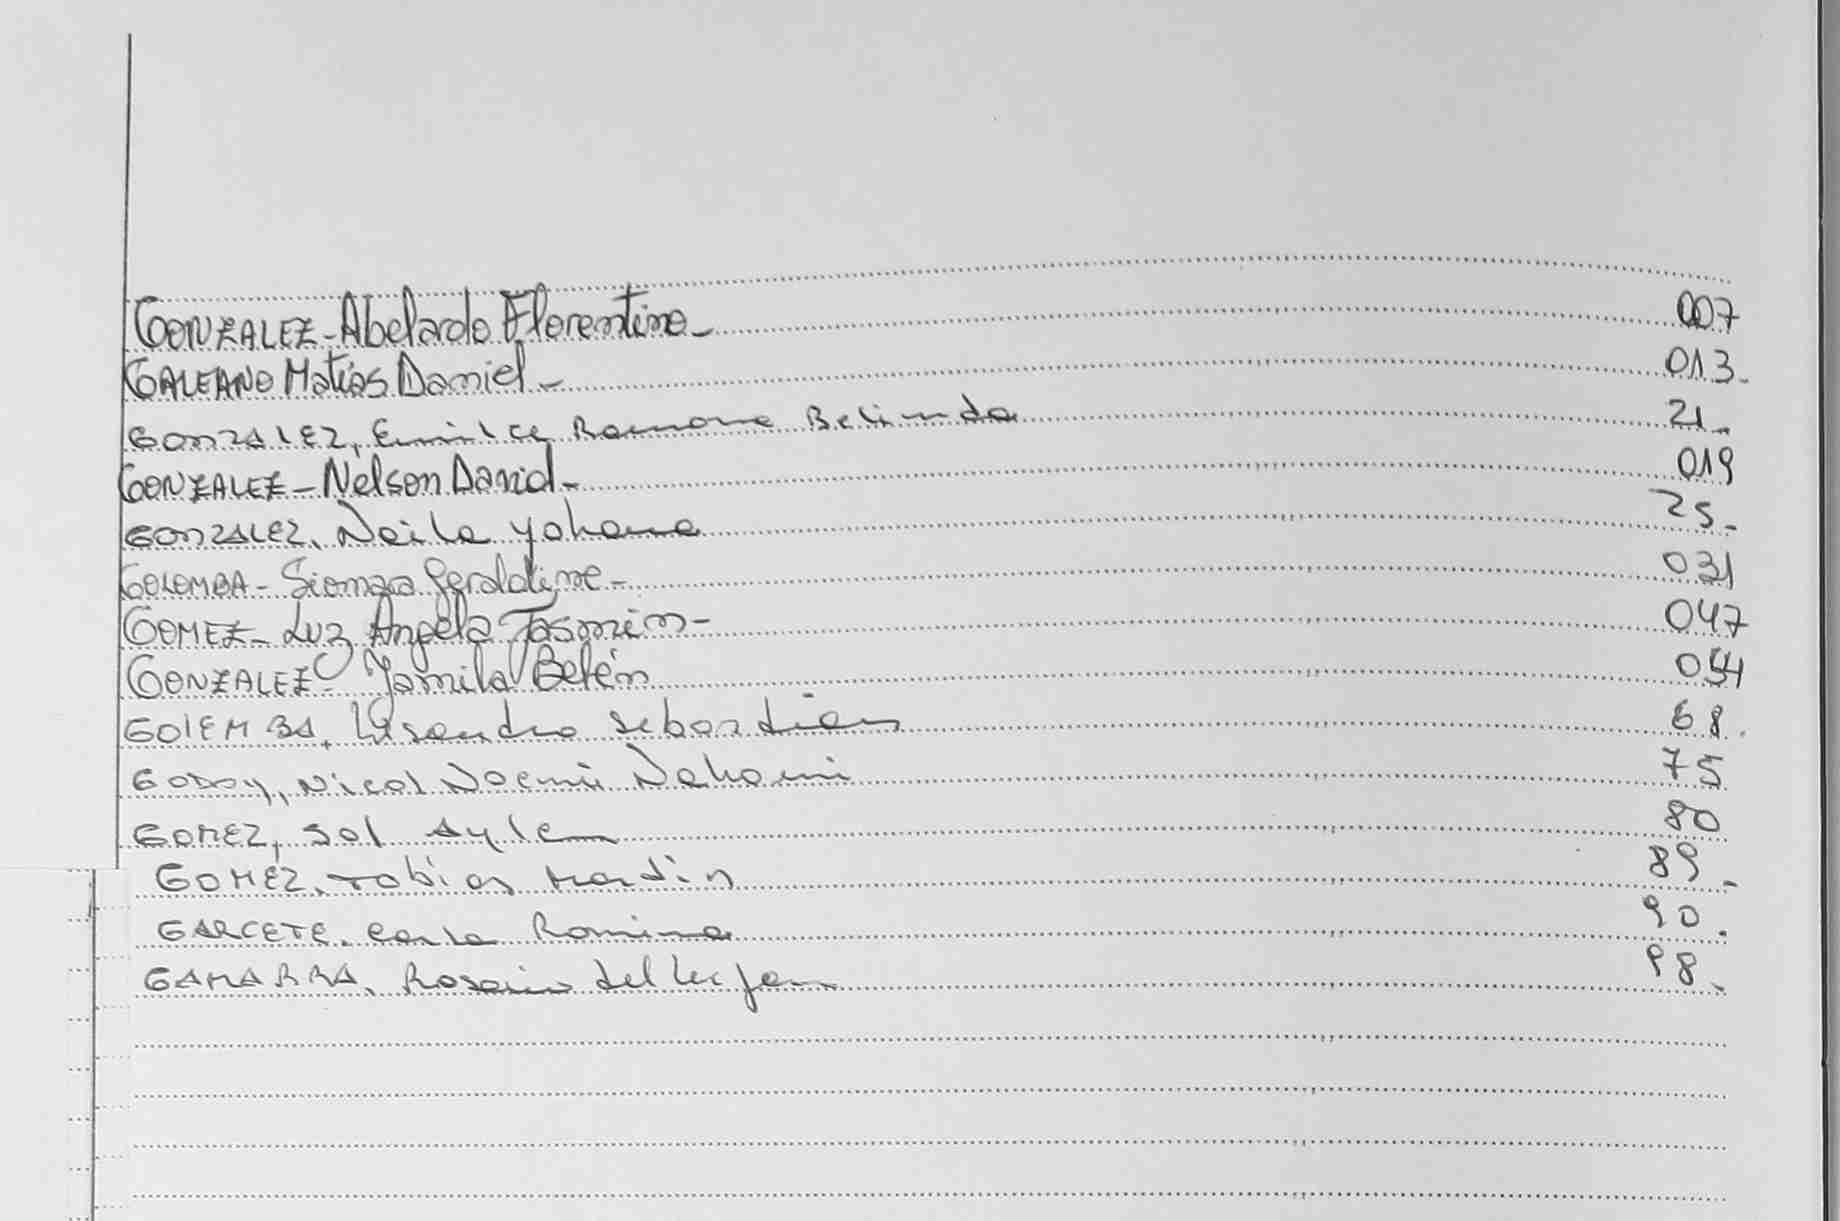 GONZALEZ - Abelardo Florentino - 007
GALEANO Matías Daniel - 013.
GONZALEZ, Emilce Ramona Belinda 21.
GONZALEZ - Nelson David - 019
GONZALEZ, Neila Yohana 25.
GOLOMBA - Siomara Geraldine - 031
GOMEZ - Luz Angela Jasmin - 047
GONZALEZ - Yamila Belén 054
GOLEMBA, Lisandro Sebastian 68.
GODOY, Nicol Noemi Nahomi 75
GOMEZ, Sol Aylen 80
GOMEZ, Tobias Martin 89.
GARCETE, Carla Romina 90.
GAMARRA, Rosario del Lujan 98.